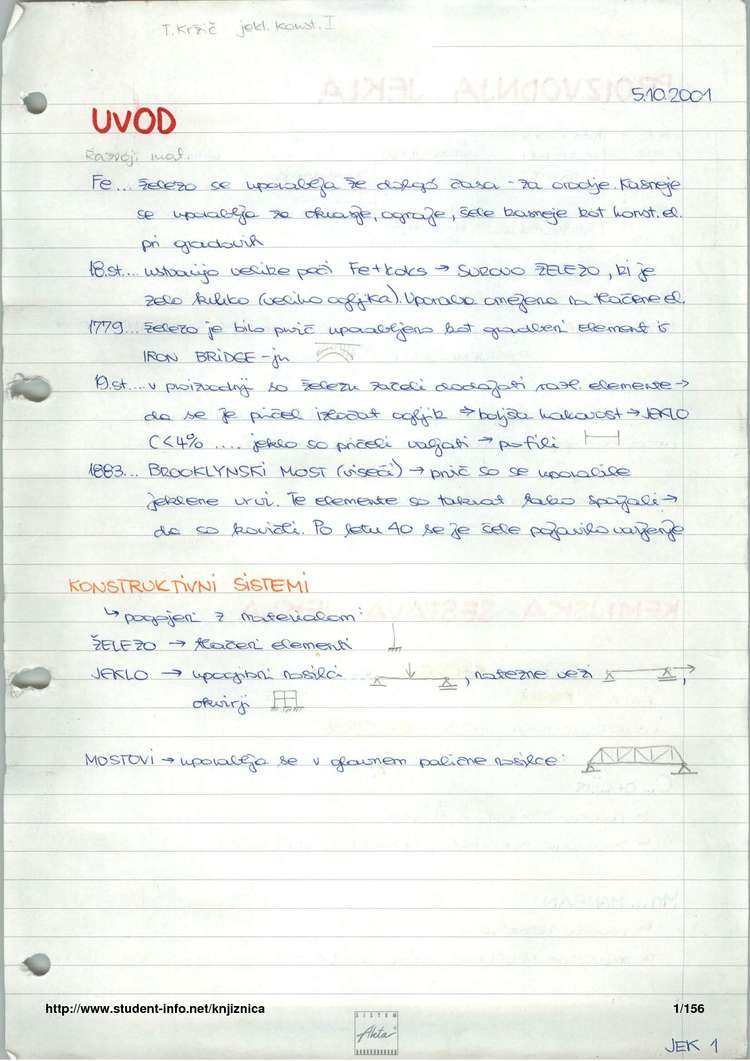 T. Kržič jekl. konst. I
5.10.2001
UVOD
Razvoj mat.
Fe... železo se uporablja že dolgo časa - za orodje. Kasneje
se uporablja za okvirje, ograje, šele kasneje kot konst. el.
pri gradovih
18.st... ustvarijo velike peči Fe + koks → SUROVO ŽELEZO, ki je
zelo krhko (veliko ogljika). Uporaba omejena na tlačene el.
1779... železo je bilo prvič uporabljeno kot gradbeni element iz
IRON BRIDGE-ju
19.st... v proizvodnji so železu začeli dodajati razl. elemente →
da se je pričel izločat ogljik → boljša kakovost → JEKLO
C<4% .... jeklo so pričeli valjati → profili
1883... BROOKLYNSKI MOST (viseči) → prvič so se uporabile
jeklene vrvi. Te elemente so takrat tako spajali →
da so kovičili. Po letu 40 se je šele pojavilo varjenje
KONSTRUKTIVNI SISTEMI
↳ pogojeni z materialom:
ŽELEZO → tlačeni elementi
JEKLO → upogibni nosilci , natezne vezi ,
okvirji
MOSTOVI → uporablja se v glavnem palične nosilce:
http://www.student-info.net/knjiznica
1/156
SISTEM
Akta
JEK 1